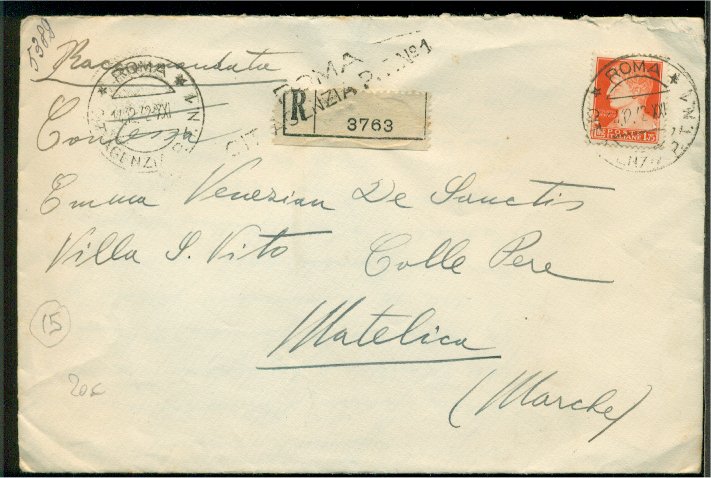 5388
Raccomandata
ROMA
ROMA
CITTÀ AGENZIA P. N° 1
R
3763
ROMA
POSTE ITALIANE 1.75
Contessa
Emma Venezian De Sanctis
Villa S. Vito Colle Pere
Matelica
(Marche)
15
20€